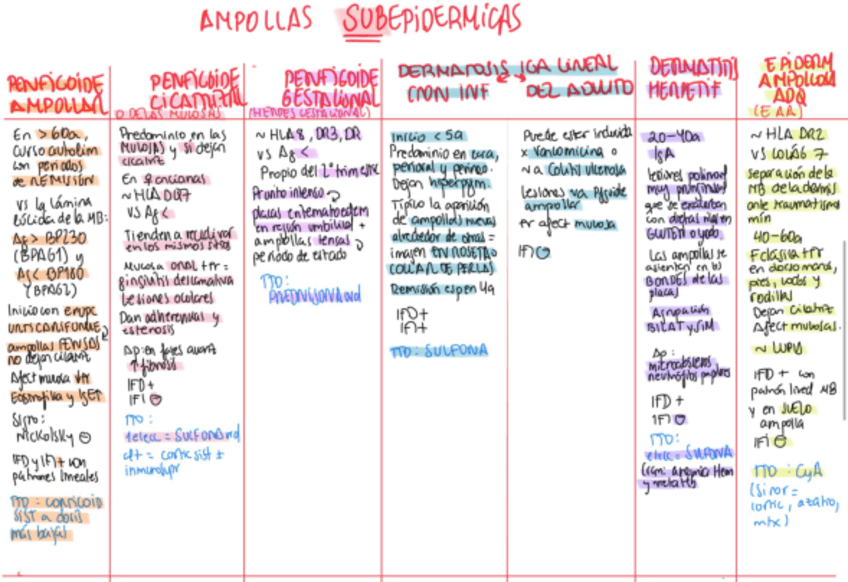 AMPOLLAS SUBEPIDERMICAS
PENFIGOIDE
AMPOLLAR
En >60a,
Curso autolim
con periodos
de REMISIÓN
VS la lámina
lúcida de la MB:
Ag> BP230
(BPAG1) y
Ag< BP180
(BPAG2)
Inicio con erupc
URTICARIFORME
ampollas TENSAS
no dejan cicatriz
Afect mucosa
Eosinofilia y IgE↑
Signo:
Nickolsky ⊖
IFD y IFI + con
patrones lineales
TTO: corticoid
sist a dosis
más bajas
PENFIGOIDE
CICATRIZAL
O DE LAS MUCOSAS
Predominio en las
MUCOSAS y sí dejan
cicatriz
En ♀ ancianas
~HLA DQ7
VS Ag <
Tienden a recidivar
en los mismos sitios
Mucosa ORAL + fr =
gingivitis descamativa
Lesiones oculares
Dan adherencias y
estenosis
Ap: en fases avanz
↑ fibrosis
IFD +
IFI ⊖
TTO:
elecc = SULFONA
alt = cortic sist ±
inmunosupr
PENFIGOIDE
GESTACIONAL
(HERPES GESTACIONAL)
~ HLA8, DR3, DR
VS Ag <
Propio del 2º trimestre
Prurito intenso
placas eritematoedem
en región umbilical +
ampollas tensas
periodo de estado
TTO:
DERMATOSIS IGA LINEAL
CON INF
Inicio < 5a
Predominio en cara,
perioral y perineo.
Dejan hiperpigm.
Típico la aparición
de ampollas nuevas
alrededor de otras =
imagen EN ROSETA O
COLLAR DE PERLAS
Remisión esp en 4a
IFD +
IFI +
TTO: SULFONA
DEL ADULTO
Puede estar inducida
x vancomicina o
~ a Colitis ulcerosa
Lesiones ~a Pfgoide
ampollar
fr afect mucosa
IFI ⊖
DERMATITIS
HERPETIF
20-40a
IgA
lesiones polimorf
muy pruriginosas
que se exacerban
con dietas ricas en
GLUTEN o yodo
Las ampollas se
asientan en los
BORDES de las
placas
Agrupación
BILAT y SIM
Ap:
microabscesos
neutrófilos papilares
IFD +
IFI ⊖
TTO:
elecc = SULFONA
(cam: anemia Hem
y metaHb)
EPIDERM
AMPOLLOSA
ADQ
(E AR)
~ HLA DR2
VS COLÁG 7
separación de la
MB de la dermis
ante traumatismo
mín
40-60a
F clásica + fr
en dorso manos,
pies, codos y
rodillas
Dejan cicatriz
Afect mucosas.
~ LUPUS
IFD + con
patrón lineal MB
y en SUELO
ampolla
IFI ⊖
TTO: CyA
(si no r =
cortic, azatio,
mtx)